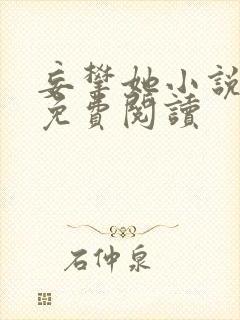 妄攀她小說
免費閱讀
石仲泉